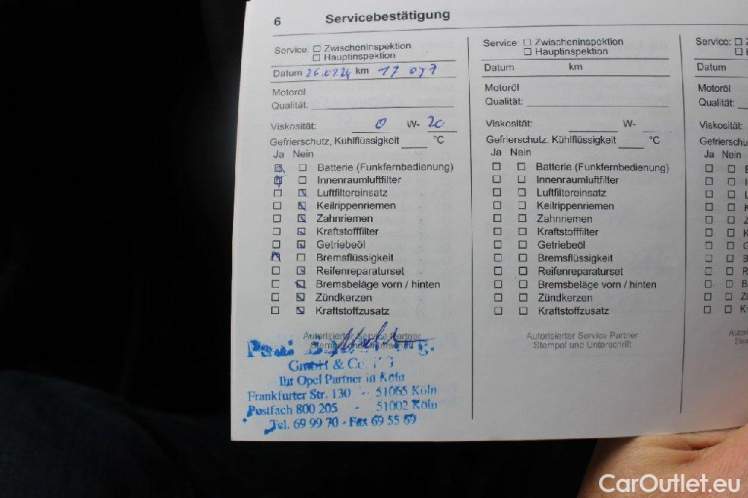 6 Servicebestätigung
Service: Zwischeninspektion
Hauptinspektion
Datum 26.01.24 km 17 097
Motoröl
Qualität:
Viskosität: 0 W- 20
Gefrierschutz, Kühlflüssigkeit °C
Ja Nein
Batterie (Funkfernbedienung)
Innenraumluftfilter
Luftfiltereinsatz
Keilrippenriemen
Zahnriemen
Kraftstofffilter
Getriebeöl
Bremsflüssigkeit
Reifenreparaturset
Bremsbeläge vorn / hinten
Zündkerzen
Kraftstoffzusatz
Autorisierter Service Partner
GmbH & Co.
Ihr Opel Partner in Köln
Frankfurter Str. 130 - 51065 Köln
Postfach 800 205 - 51002 Köln
Tel. 69 99 70 - Fax 69 55 69
Service: Zwischeninspektion
Hauptinspektion
Datum km
Motoröl
Qualität:
Viskosität: W-
Gefrierschutz, Kühlflüssigkeit °C
Ja Nein
Batterie (Funkfernbedienung)
Innenraumluftfilter
Luftfiltereinsatz
Keilrippenriemen
Zahnriemen
Kraftstofffilter
Getriebeöl
Bremsflüssigkeit
Reifenreparaturset
Bremsbeläge vorn / hinten
Zündkerzen
Kraftstoffzusatz
Autorisierter Service Partner
Stempel und Unterschrift
Service:
Datum
Motoröl
Qualität:
Viskosität:
Gefrierschu
Ja Nein
CarOutlet.eu